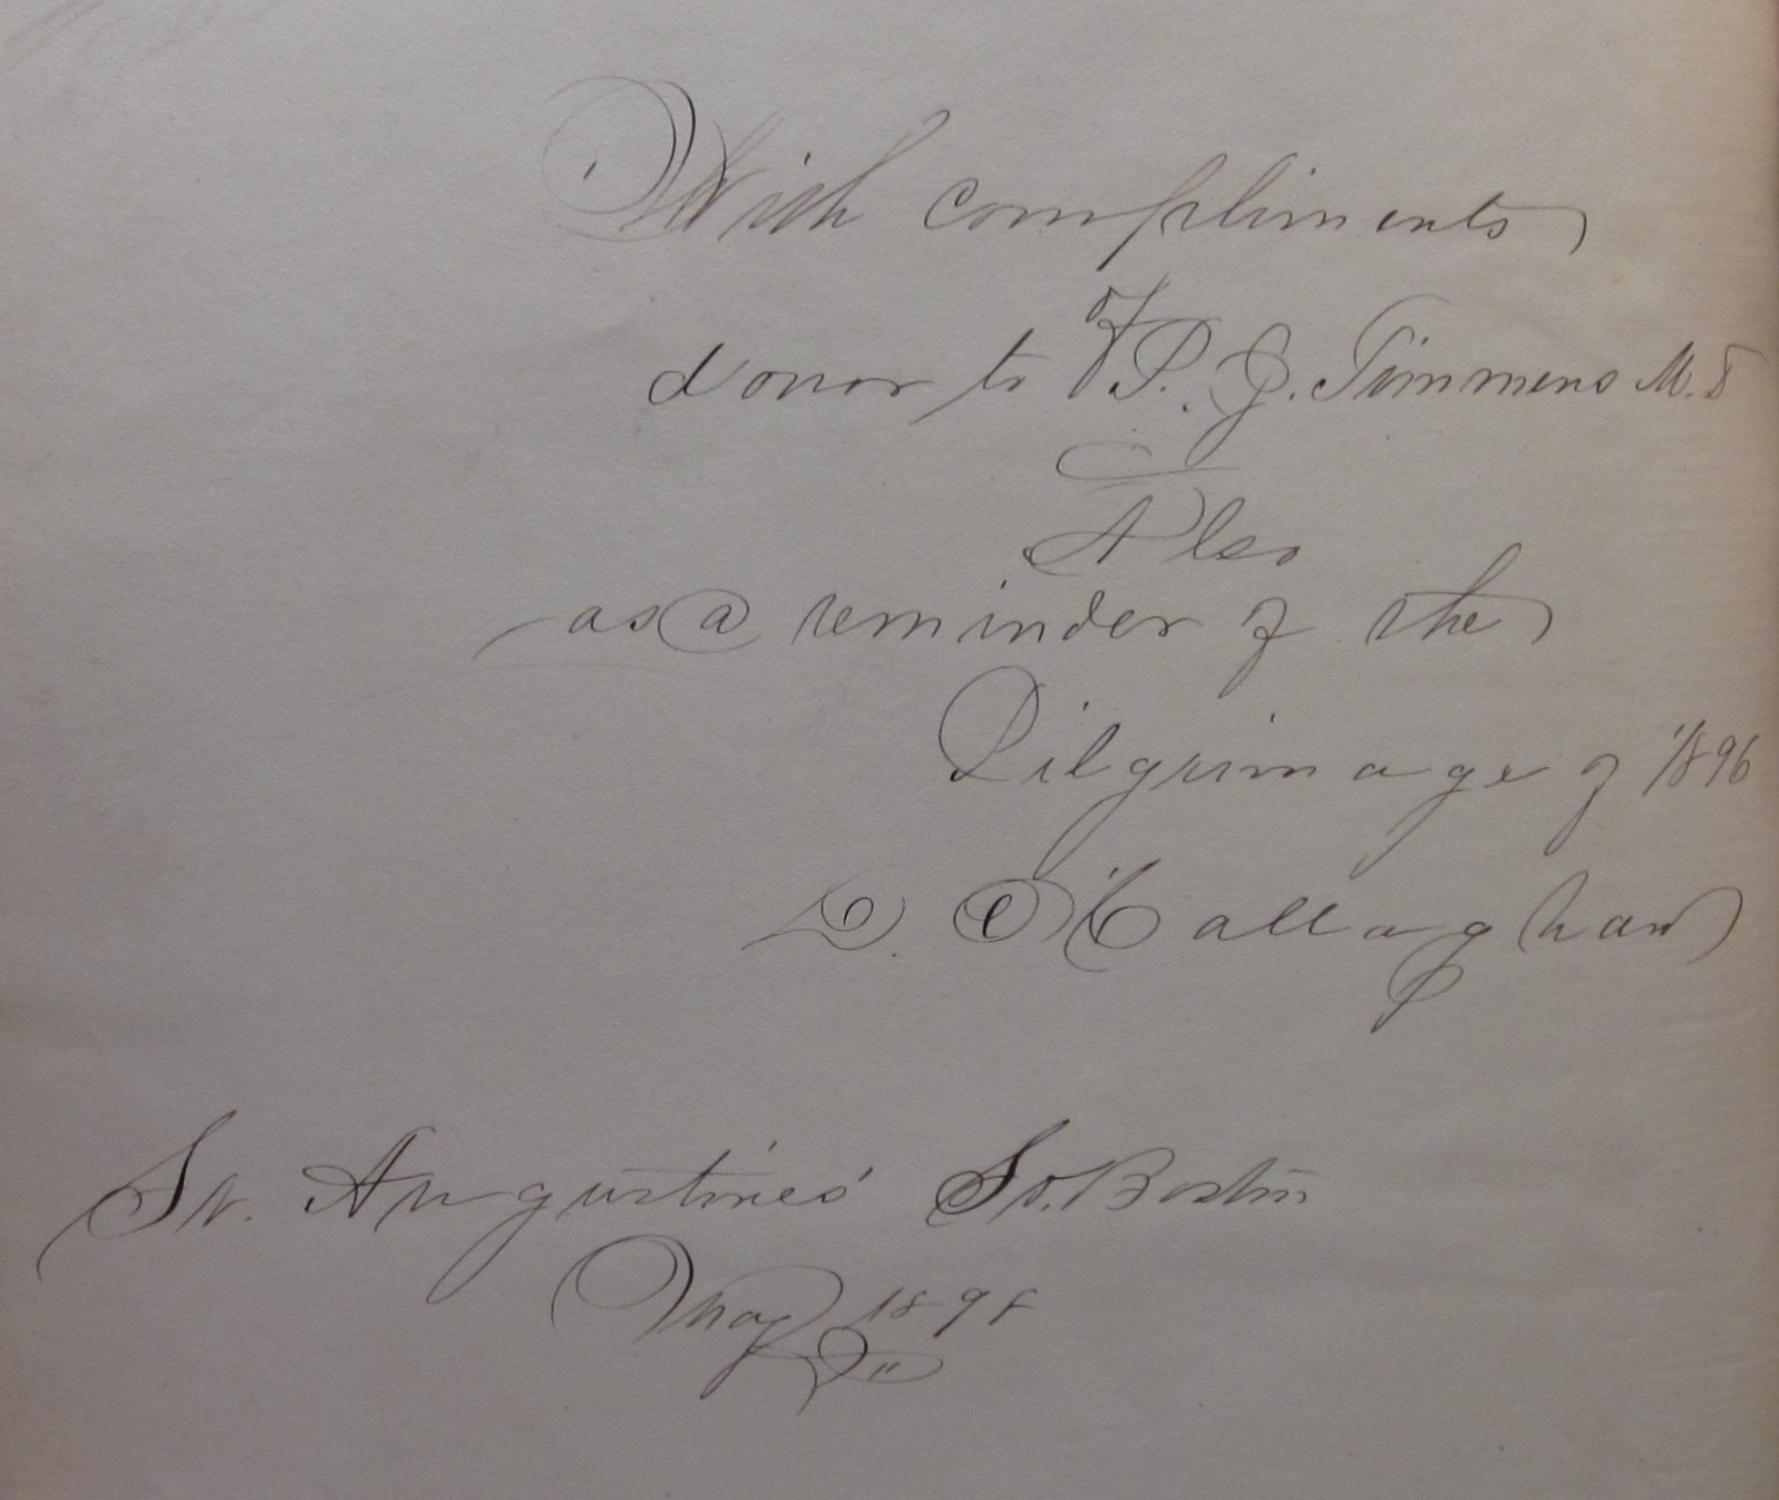 With compliments
of
donor to P. J. Timmens M.D
Also
as a reminder of the
Pilgrimage of 1896
D. O'Callaghan
St. Augustine's So. Boston
May 1898